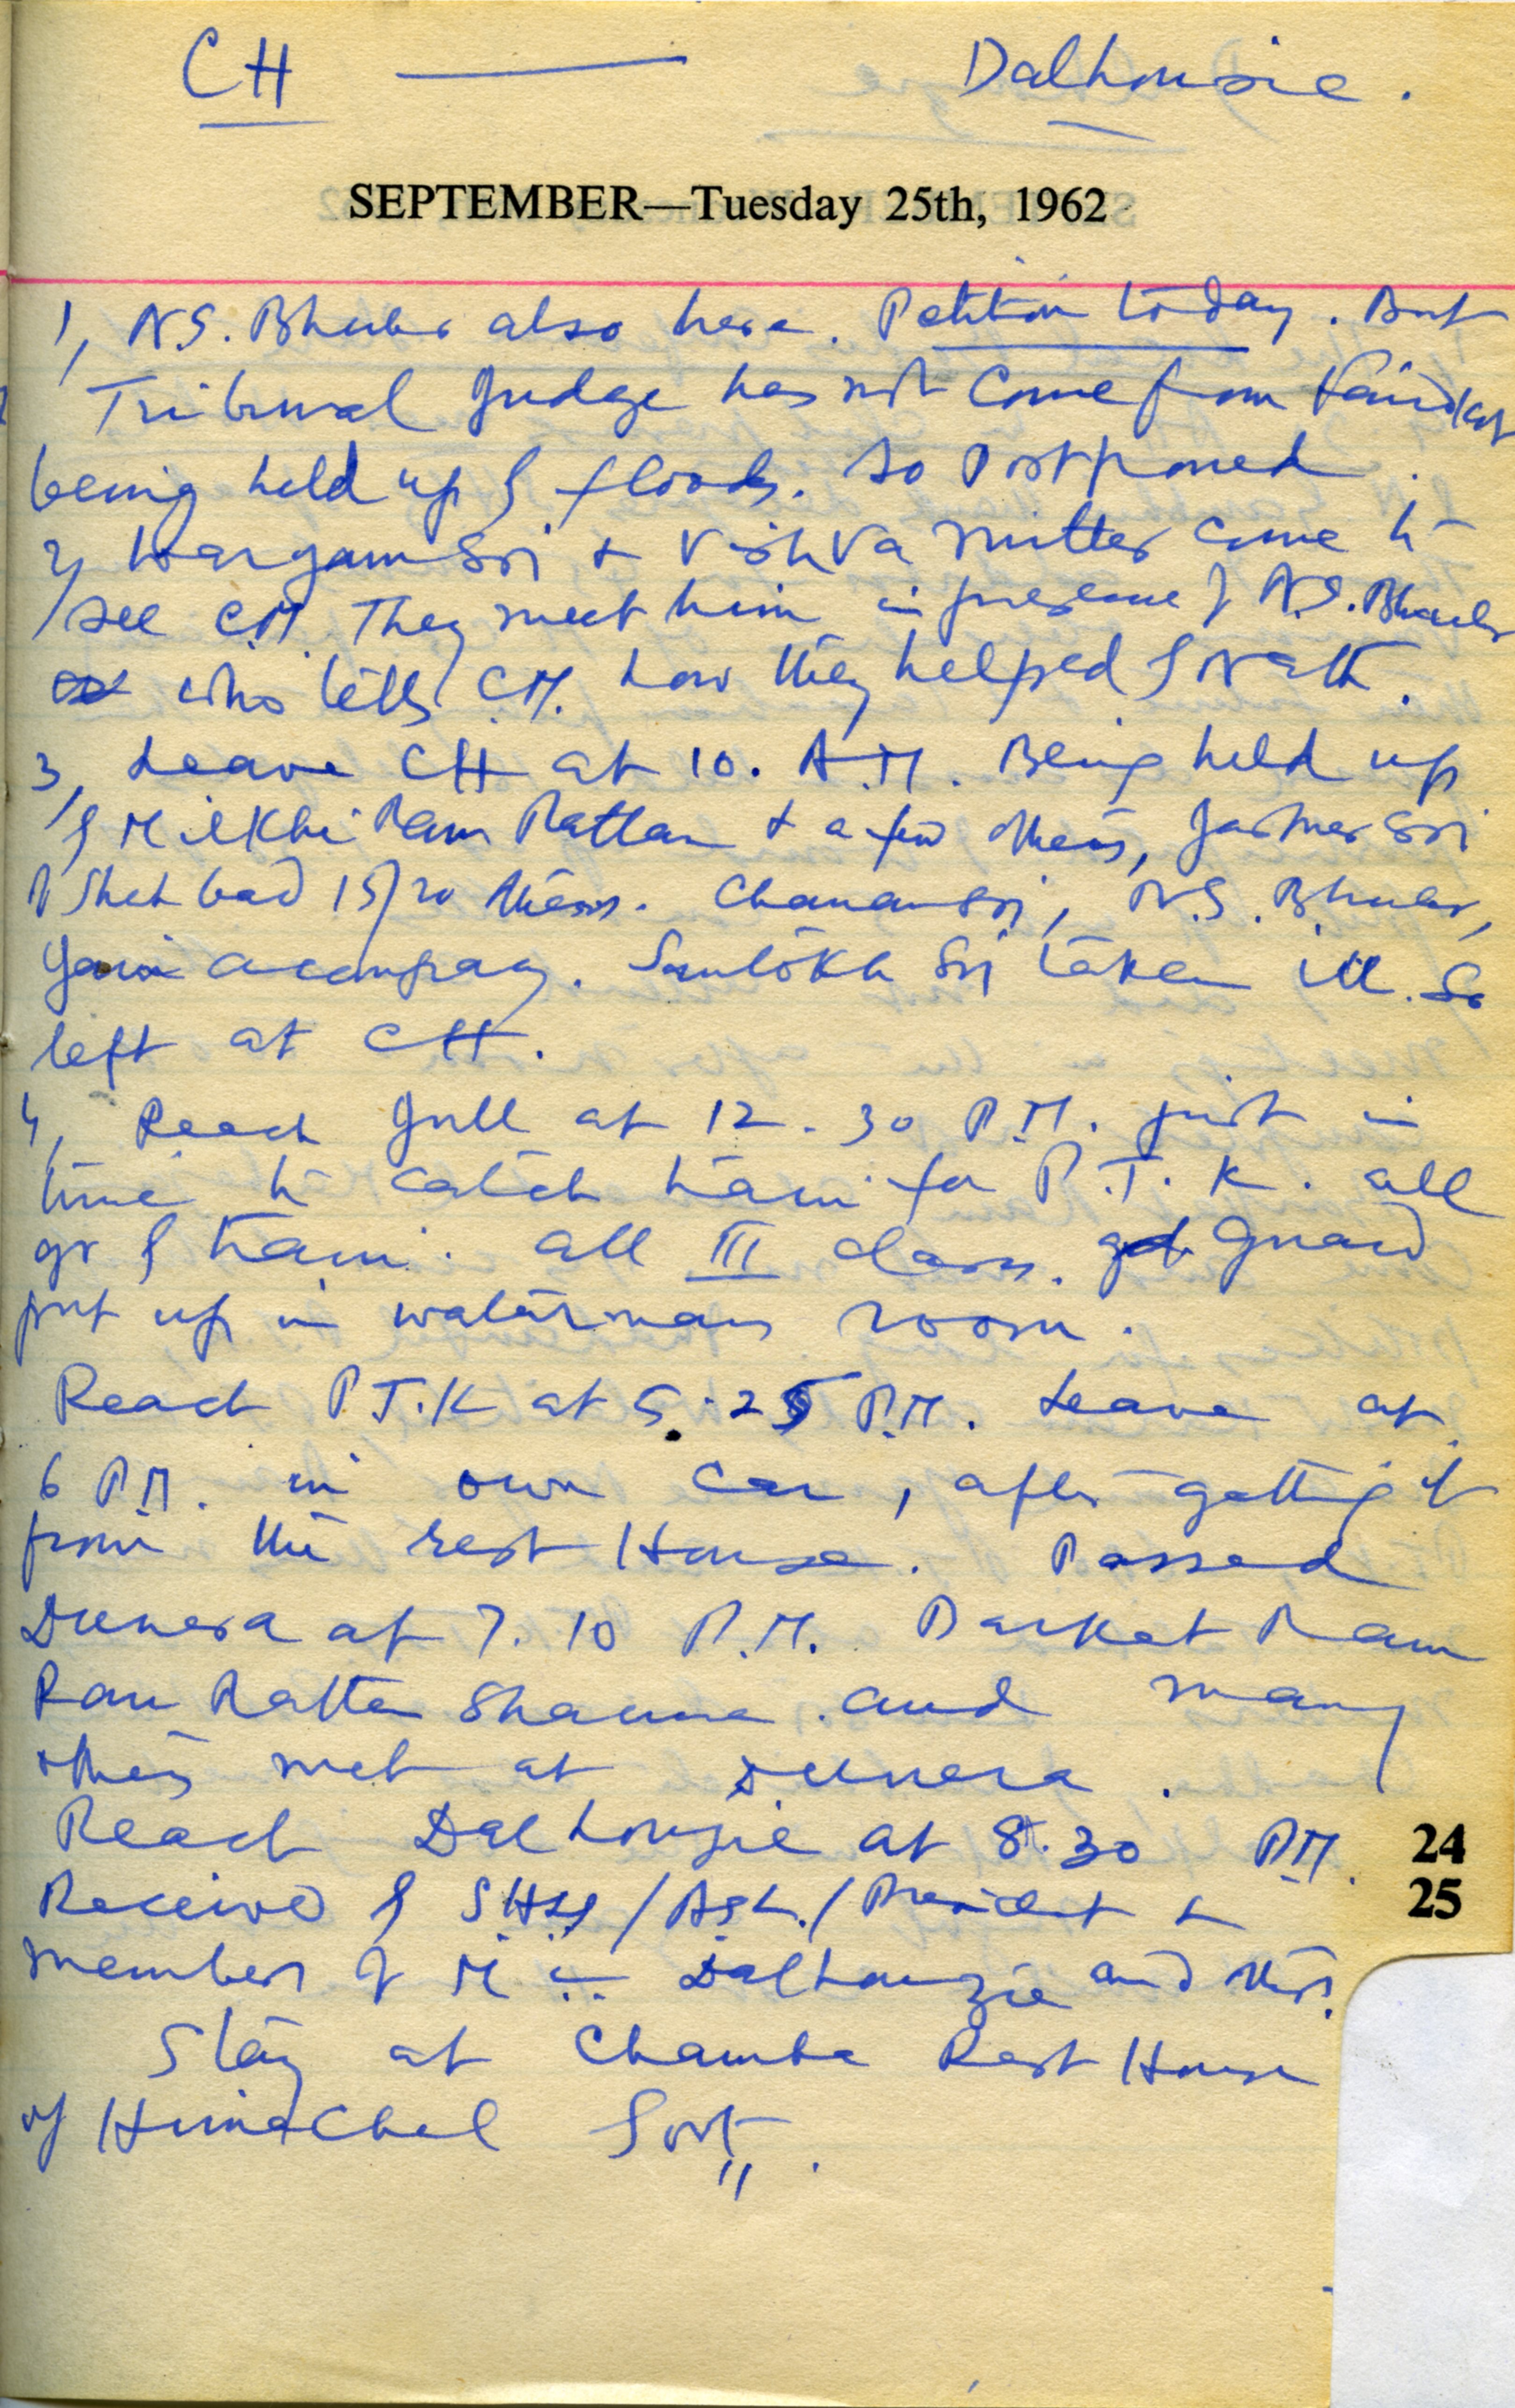 CH — Dalhousie.
SEPTEMBER—Tuesday 25th, 1962
1, N.S. Bhuler also here. Petition today. But
Tribunal Judge has not come from Faridkot
being held up by floods. So Postponed.
2, Waryam Sri & Vishva Mitter come to
see CM. They meet him in presence of N.S. Bhuler
who tells CM. how they helped
3, Leave CH at 10. A.M. Being held up
by Milkhi Ram Rattan & a few others,
15/20 others. Chanan Sri, N.S. Bhuler,
accompany. Santokh Sri taken ill. So
left at CH.
4, Reach Jull at 12.30 P.M. just in
time to catch train for P.T.K. all
go by train. all III class. Guard
put up in waterman's room.
Reach P.T.K at 5.25 P.M. Leave at
6 P.M. in own car, after getting it
from the rest House. Passed
Dunera at 7.10 P.M. Barkat Ram
Ram Rattan Sharma and many
others met at Dunera.
Reach Dalhousie at 8.30 P.M. 24
Received by / / President & 25
members of M.C. Dalhousie and others.
Stay at Chamba Rest House
of Himachal Govt.